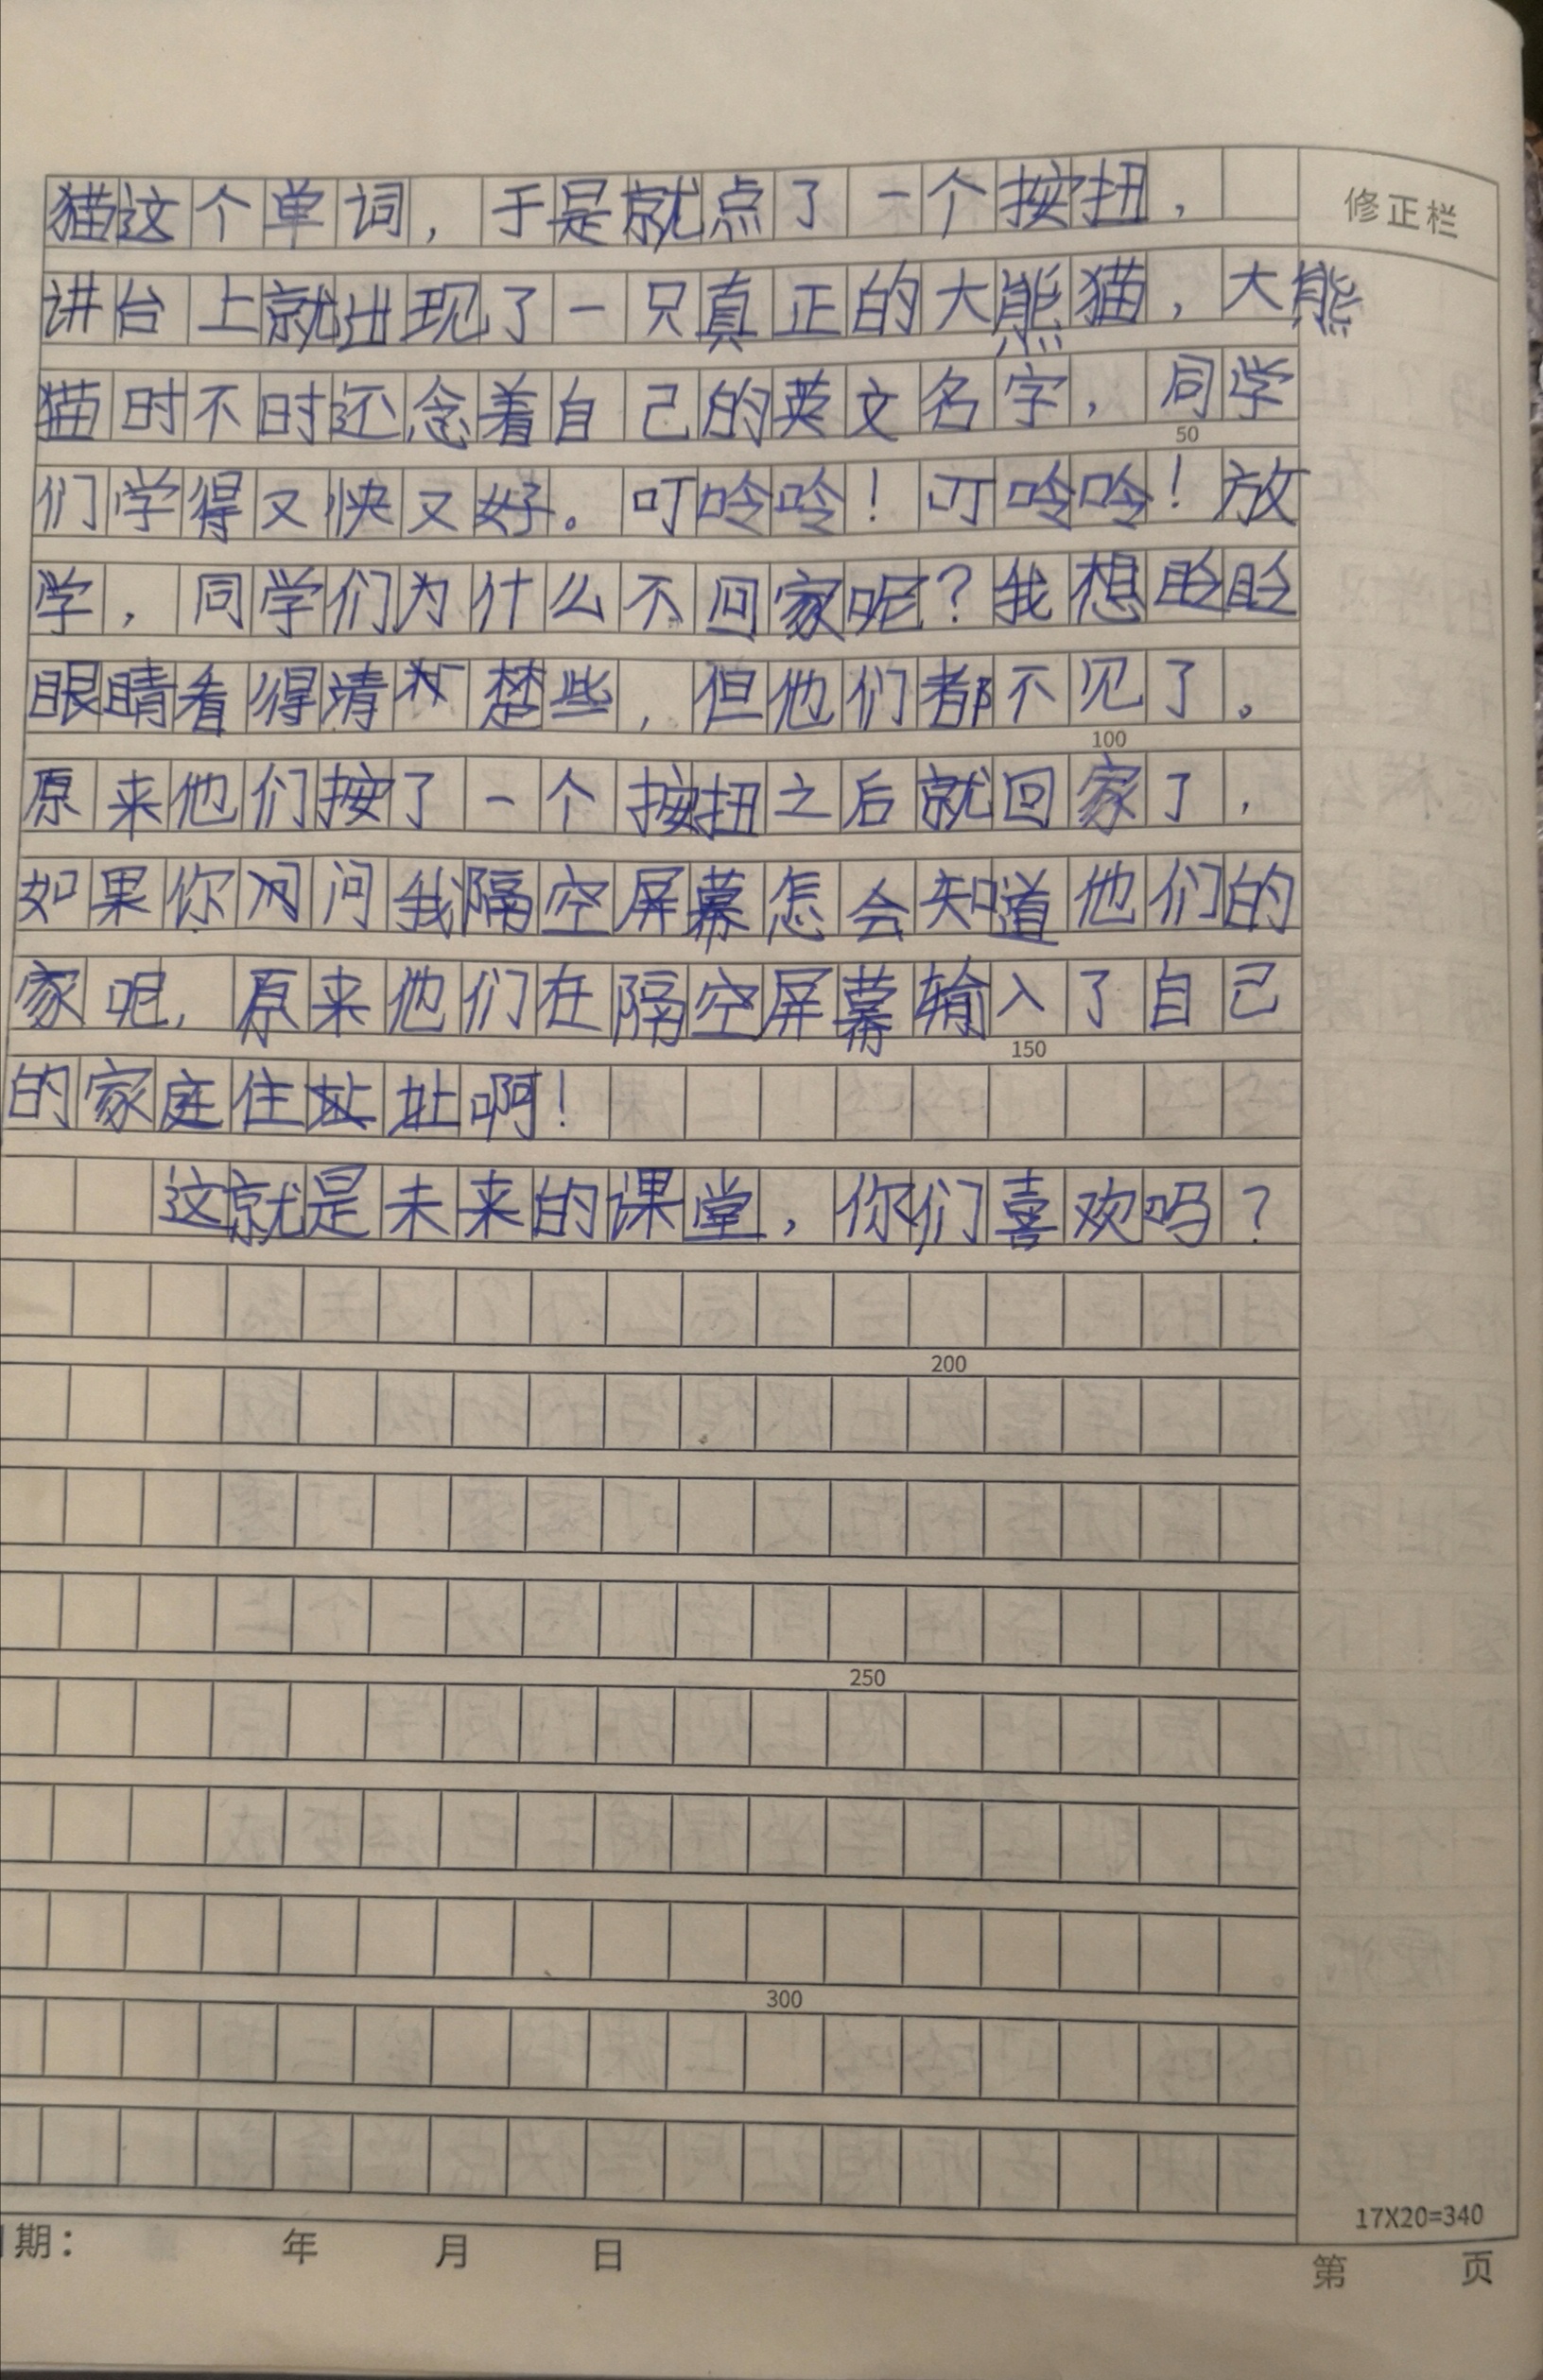 猫这个单词，于是就点了一个按扭，
修正栏
讲台上就出现了一只真正的大熊猫，大熊
猫时不时还念着自己的英文名字，同学
50
们学得又快又好。叮呤呤！叮呤呤！放
学，同学们为什么不回家呢？我想眨眨
眼睛看得清楚些，但他们都不见了。
100
原来他们按了一个按扭之后就回家了，
如果你问我隔空屏幕怎会知道他们的
家呢，原来他们在隔空屏幕输入了自己
150
的家庭住址啊！
这就是未来的课堂，你们喜欢吗？
200
250
300
17X20=340
期： 年 月 日
第 页